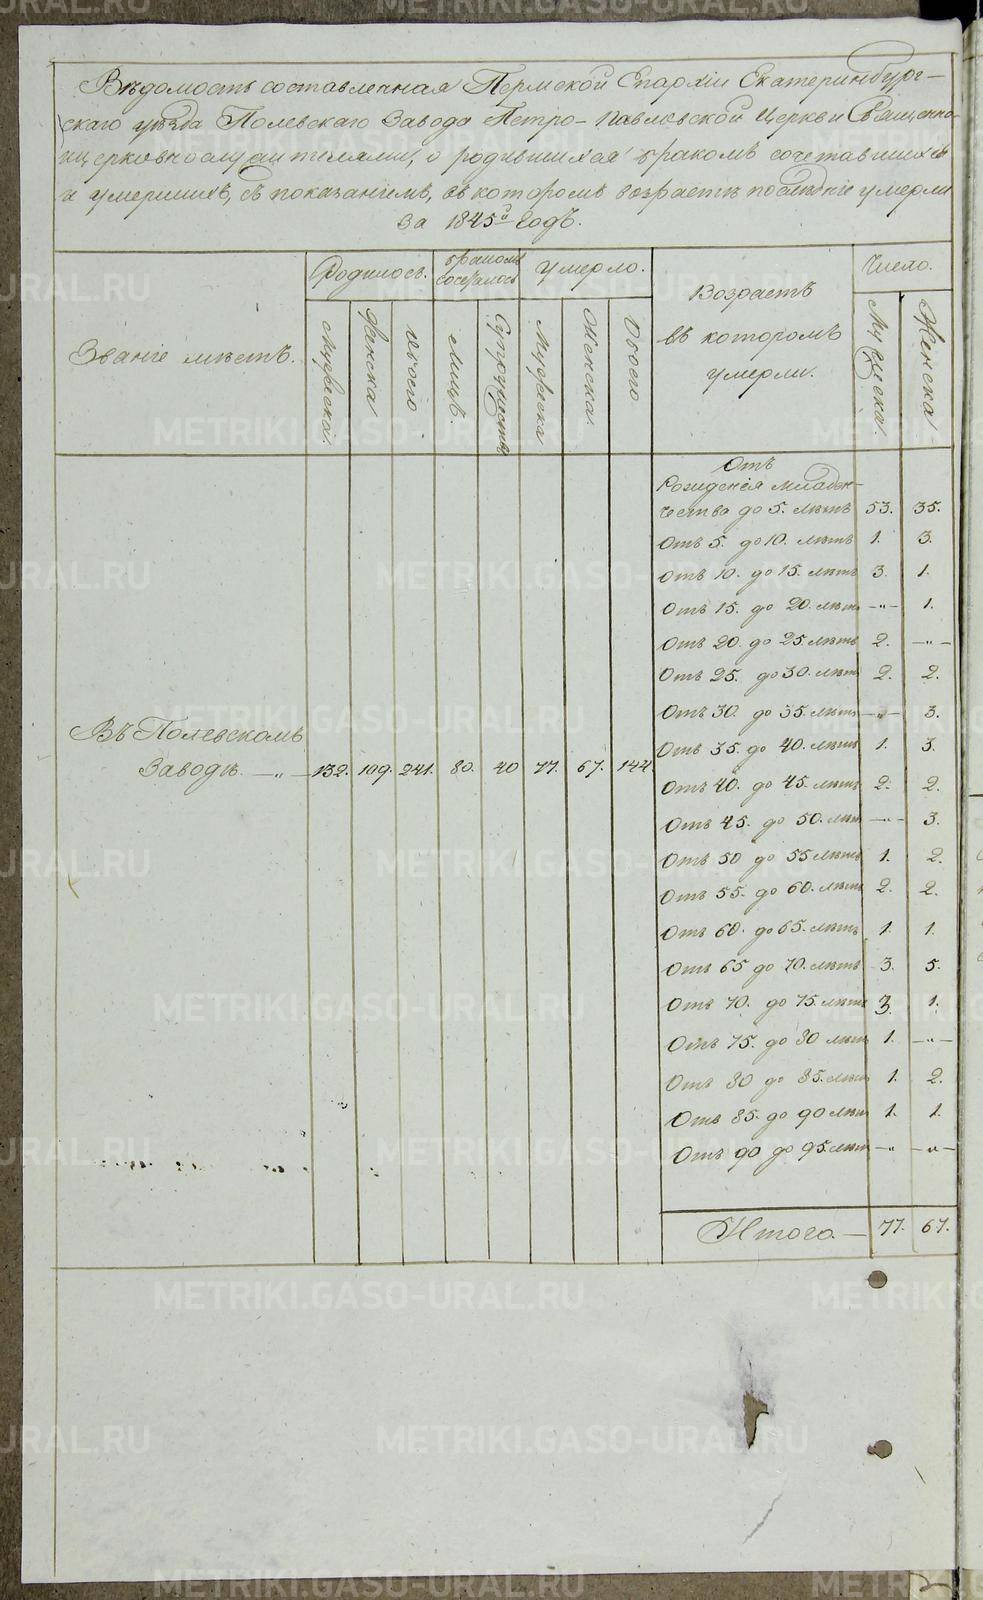 Вѣдомость составленная Пермской Епархіи Екатеринбург-
скаго уѣзда Полевскаго Завода Петро-Павловской Церкви Священно-
ицерковнослужителями, о родившихся бракомъ сочетавшихся
и умершихъ, съ показаніемъ, въ которомъ возрастѣ послѣдніе умерли
за 1845й годъ.
Званіе мѣстъ.
Родилось.
бракомъ сочеталось
Умерло.
Возрастъ
въ которомъ
умерли.
Число.
Мужеска.
Женска
Обоего
Лицъ.
Супружествъ
Мужеска
Женска.
Обоего
Мужеска.
Женска
Отъ
Рожденія младен-
чества до 5. лѣтъ 53. 35.
Отъ 5. до 10. лѣтъ 1. 3.
Отъ 10. до 15. лѣтъ 3. 1.
Отъ 15. до 20. лѣтъ —"— 1.
Отъ 20. до 25 лѣтъ 2. —"—
Отъ 25. до 30. лѣтъ 2. 2.
Отъ 30. до 35. лѣтъ —"— 3.
Отъ 35. до 40. лѣтъ 1. 3.
Въ Полевскомъ
Заводѣ. —"— 132. 109. 241. 80. 40 77. 67. 144.
Отъ 40. до 45. лѣтъ 2. 2.
Отъ 45. до 50. лѣтъ —"— 3.
Отъ 50 до 55 лѣтъ 1. 2.
Отъ 55. до 60. лѣтъ 2. 2.
Отъ 60. до 65. лѣтъ 1. 1.
Отъ 65 до 70. лѣтъ 3. 5.
Отъ 70. до 75. лѣтъ 3. 1.
Отъ 75. до 80 лѣтъ 1. —"—
Отъ 80 до 85. лѣтъ 1. 2.
Отъ 85. до 90 лѣтъ 1. 1.
Отъ 90 до 95. лѣтъ —"— —"—
Итого. — 77. 67.
METRIKI.GASO-URAL.RU